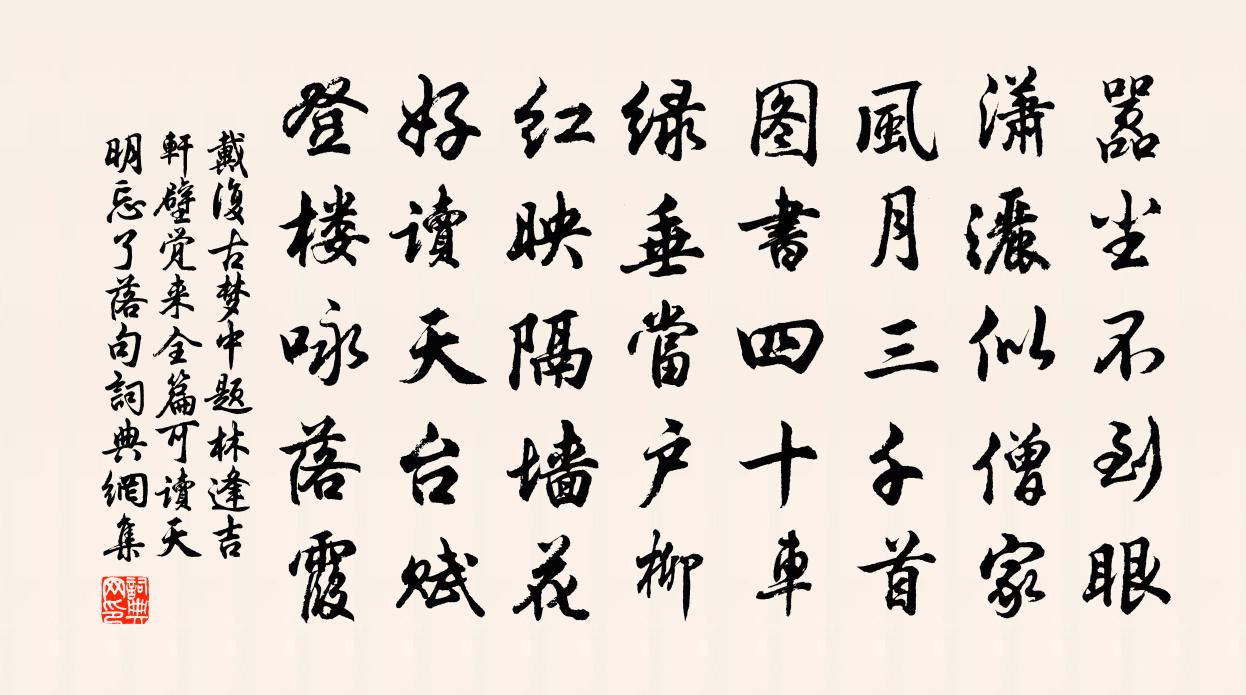 嚣尘不到眼
潇灑似僧家
風月三千首
图書四十車
绿垂當户柳
红映隔墙花
好读天台赋
登楼咏落霞
戴復古梦中题林逢吉
軒壁觉来全篇可读天
明忘了落句詞典網集
詞典网印